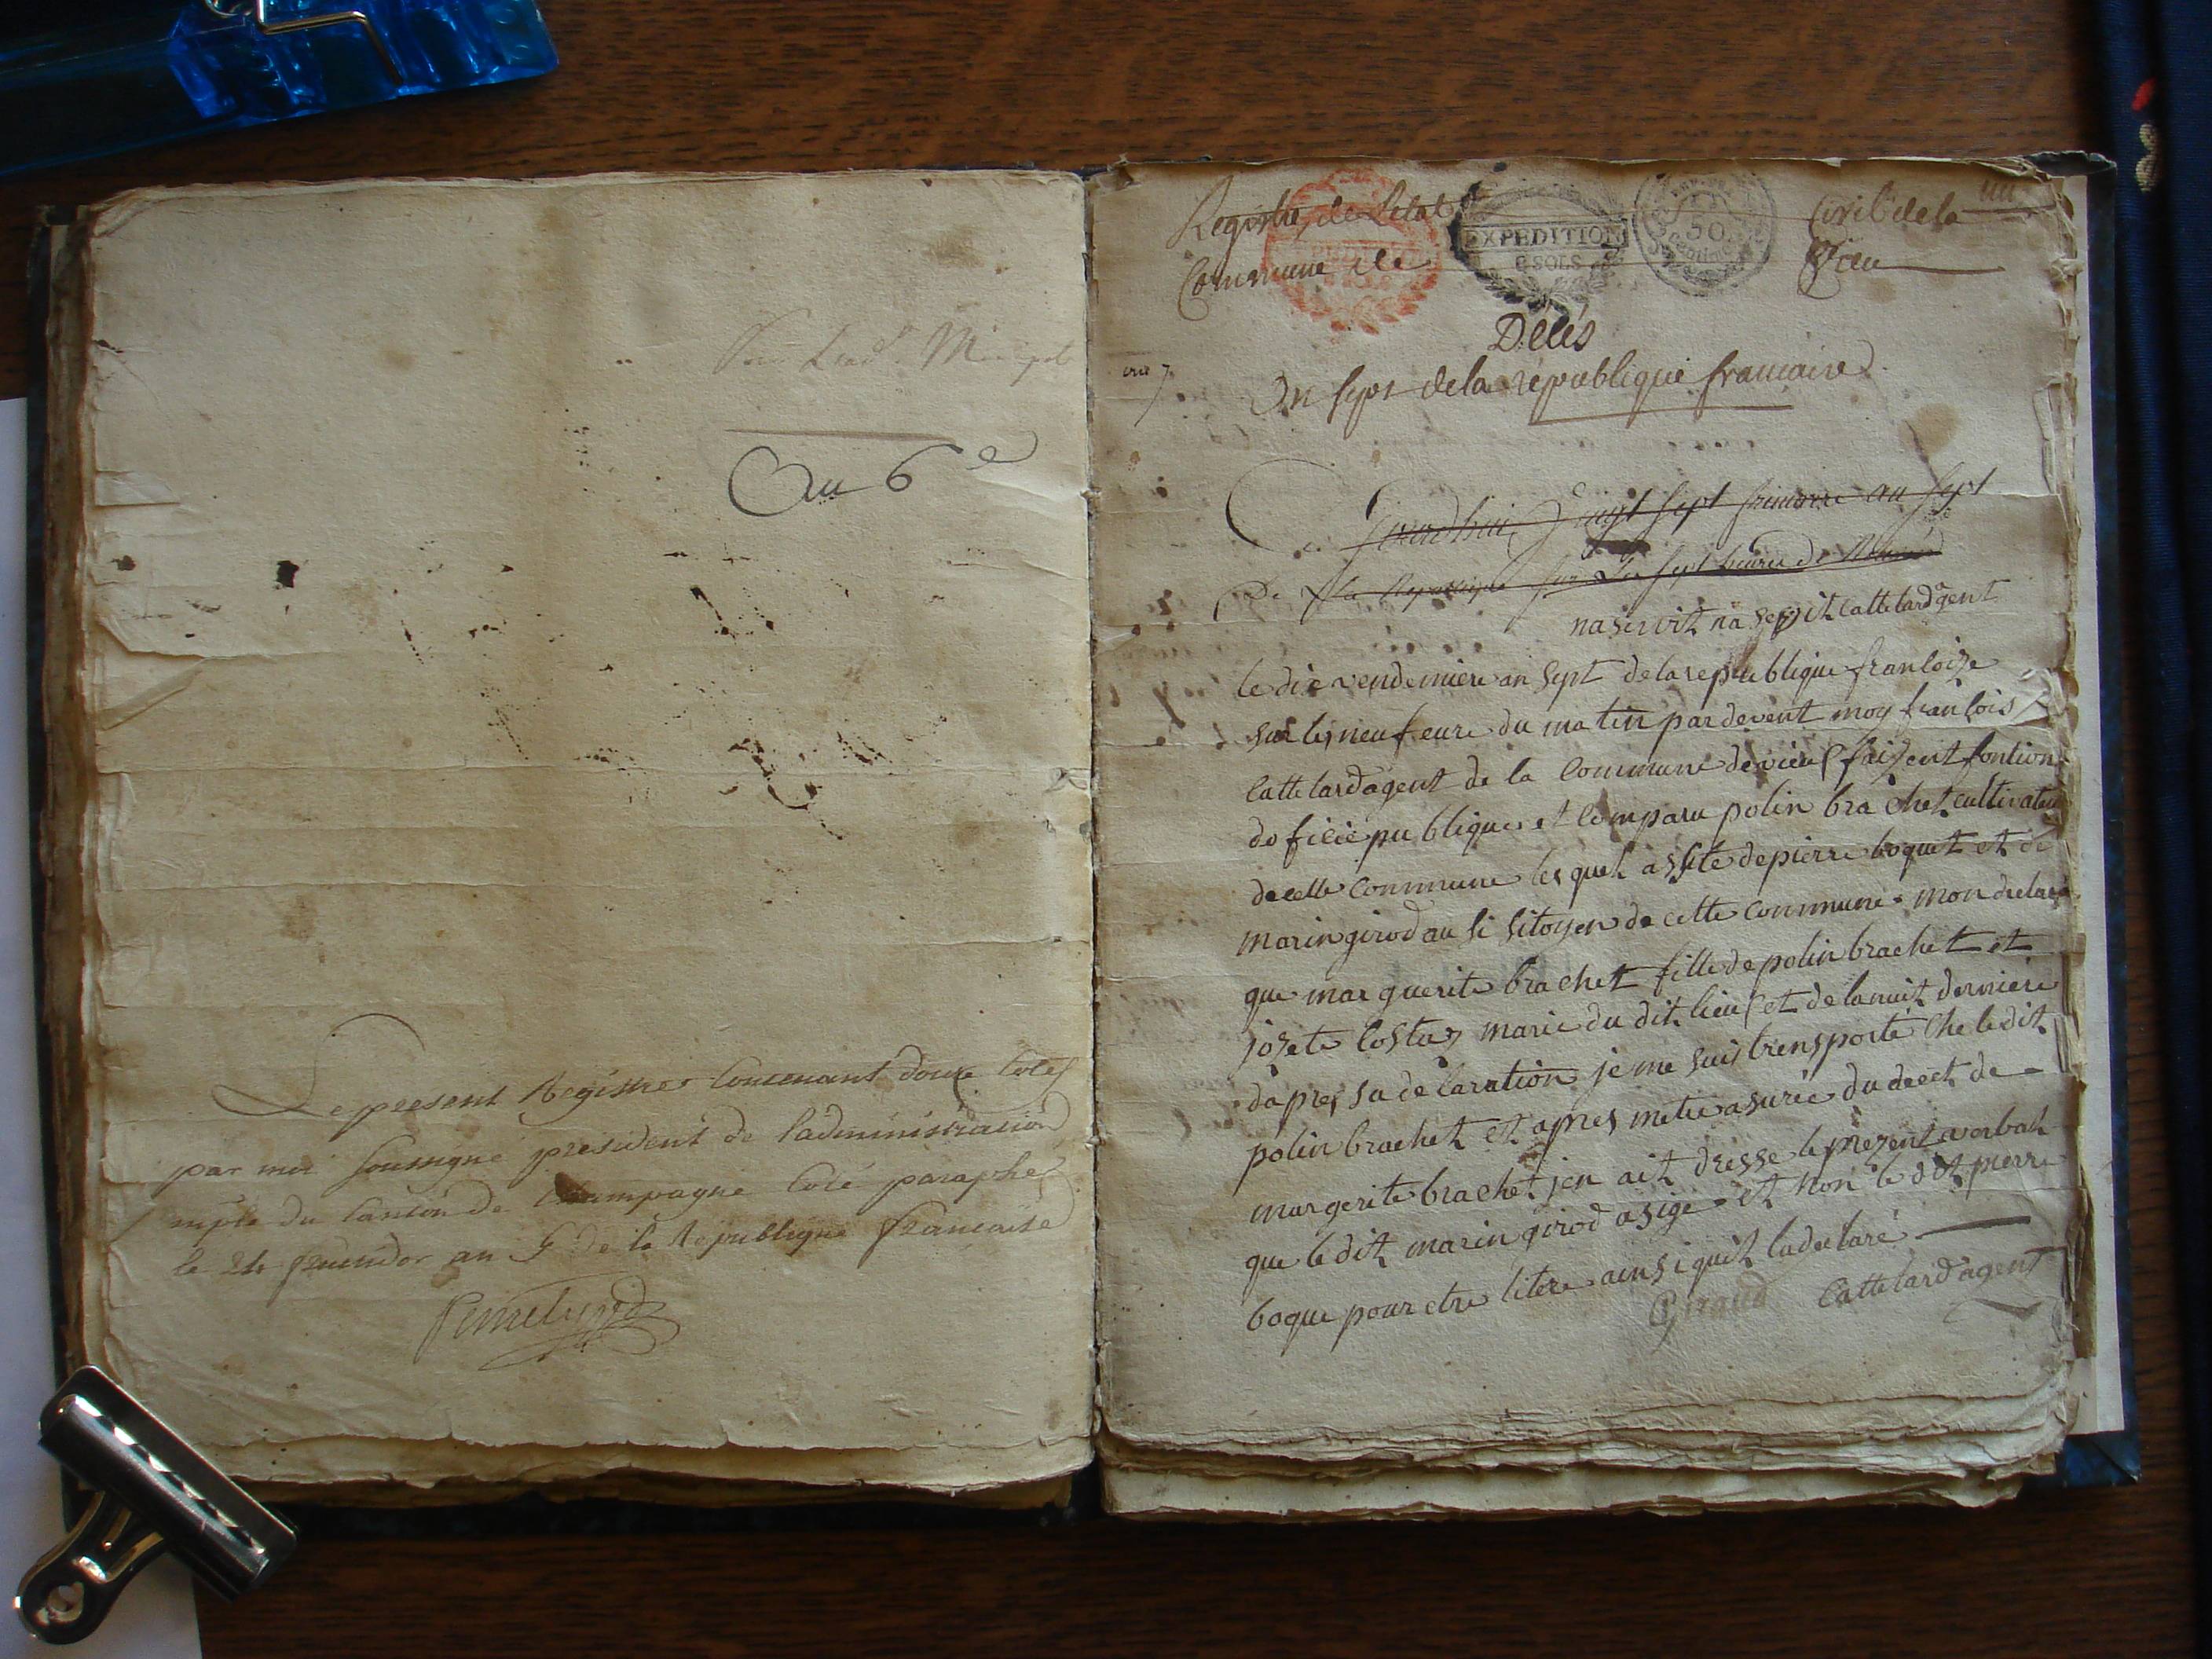 An 6e
Le present Registre Contenant douze Cotes
par moi soussigné président de l'administration
mple du Canton de Champagne Coté paraphé
le 24 fructidor an 6 de la République francaise
un
Registre de l'etat Civil de la
Commune de Vieu
EXPEDITION
50
Centimes
EXPEDITION
SOLS
Décès
an 7
An sept de la république francaise
Ce jourdhui vingt sept frimaire an sept
De la Republique sur les sept heures de
cattelard agent
le dix vendemiere an sept de la republique francoize
sur les neuf eure du matin par devent moy francois
cattelard agent de la commune de vieu faizent fontion
do ficié publique et comparu polin brachet cultivateur
de cette commune les quel assité de pierre boquet et de
marin girod au si sitoyen de cette commune mon declaré
que marguerite brachet fille de polin brachet et
jozete costaz marié du dit lieu et de la nuit derniere
dapres sa declaration je me suis trensporté che le dit
polin brachet et apres metre asurée du deect de
margerite brachet jen ait dresse le prezent vorbah
que le dit marin girod a sige et non le dit pierre
boque pour etre litere ainsi quit la declaré
Giraud cattelard agent